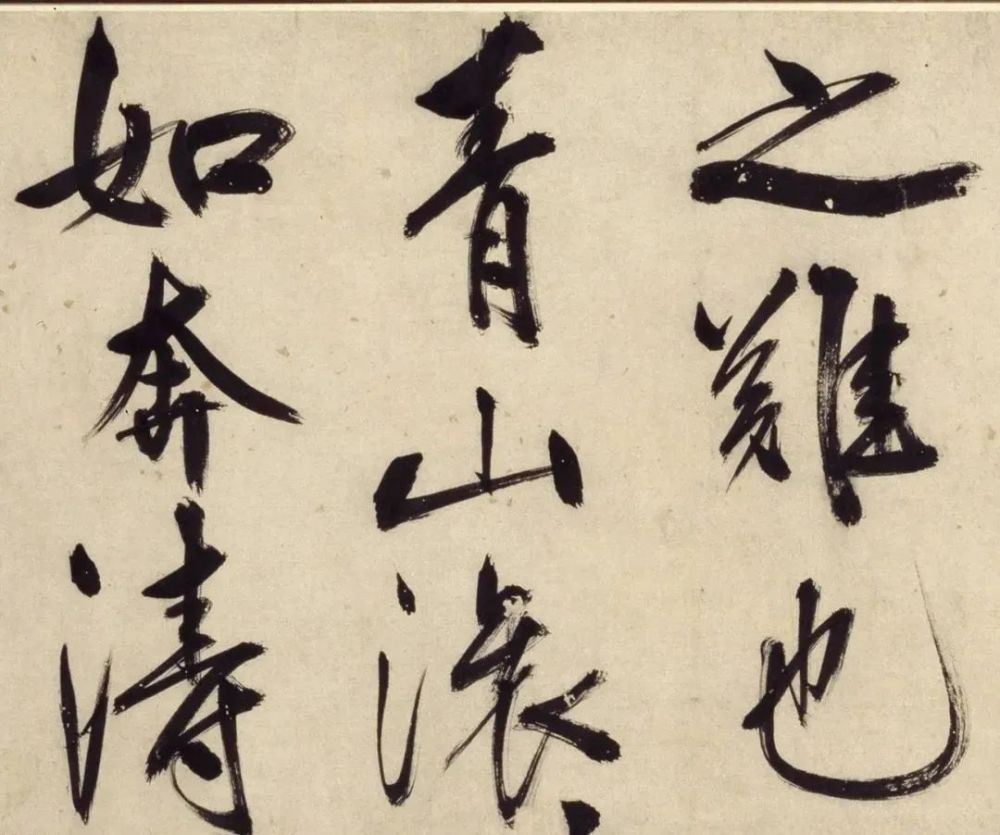 之難也
青山滚
如奔濤